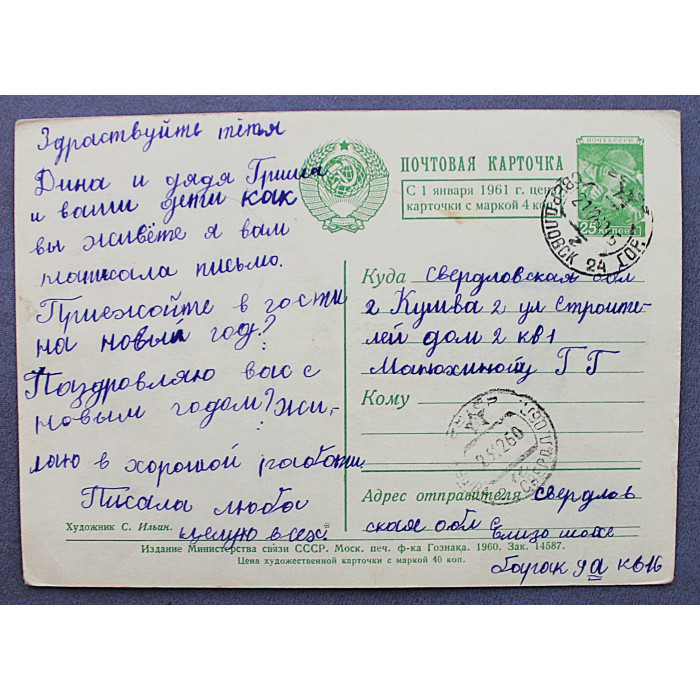 Здраствуйте тётья
Дина и дядя Гриша
и ваши дети как
вы живёте я вам
написала письмо.
Приежайте в гости
на новый год?
Паздровляю вас с
новым годом? жи,-
лаю в хорошой работи.
Писала люба
целую всех.
Художник С. Ильин.
ПОЧТОВАЯ КАРТОЧКА
С 1 января 1961 г. цена
карточки с маркой 4 коп.
ПОЧТА СССР
25 КОПЕЕК
24 ГОР.
Куда Свердловская обл
г Кушва 2 ул строите-
лей дом 2 кв1
Манюхиной Г Г
Кому
Адрес отправителя свердлов
ская обл
барак 9а кв16
Издание Министерства связи СССР. Моск. печ. ф-ка Гознака. 1960. Зак. 14587.
Цена художественной карточки с маркой 40 коп.